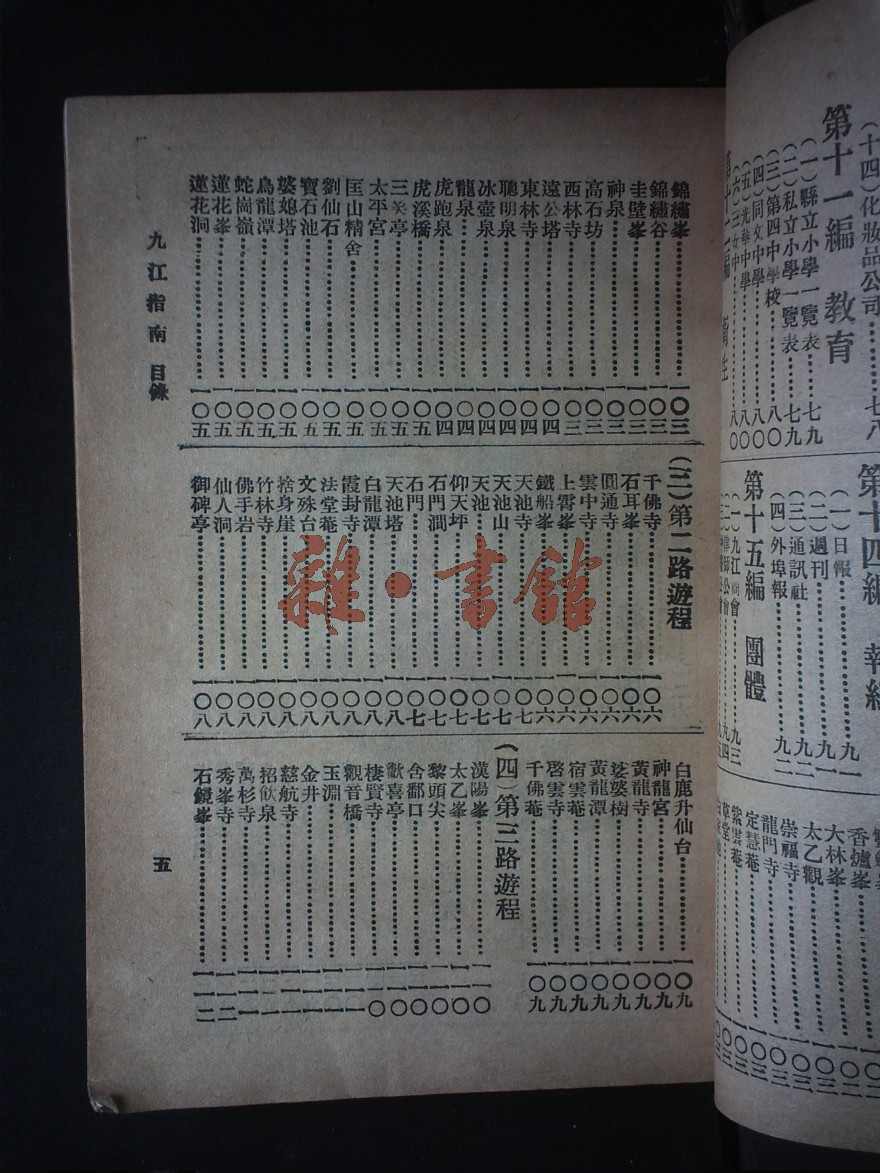 （十四）化妝品公司……七八
第十一編 教育
（一）縣立小學一覽表……七九
（二）私立小學一覽表……七九
（三）第四中學校……八〇
（四）同文中學……八〇
（五）光華中學……八〇
（六）三女中……八〇
（一）日報……九一
（二）週刊……九一
（三）通訊社……九二
（四）外埠報……九二
第十五編 團體
（一）九江商會……九三
香爐峯
大林峯
太乙觀
崇福寺
龍門寺
定慧菴
紫雲菴
草堂
錦繡峯……一〇三
錦繡谷……一〇三
圭壁峯……一〇三
神泉……一〇三
高石坊……一〇三
西林寺……一〇三
遠公塔……一〇四
東林寺……一〇四
聰明泉……一〇四
冰壺泉……一〇四
龍泉……一〇四
虎跑泉……一〇四
虎溪橋……一〇五
三笑亭……一〇五
太平宮……一〇五
匡山精舍……一〇五
劉仙石……一〇五
寶石池……一〇五
婆媳塔……一〇五
烏龍潭……一〇五
蛇崗嶺……一〇五
蓮花峯……一〇五
蓮花洞……一〇五
（三）第二路遊程
千佛寺……一〇六
石耳峯……一〇六
圓通寺……一〇六
雲中寺……一〇六
上霄峯……一〇六
鐵船峯……一〇六
天池寺……一〇七
天池山……一〇七
天池……一〇七
仰天坪……一〇七
石門澗……一〇七
石門……一〇七
天池塔……一〇八
白龍潭……一〇八
霞封寺……一〇八
法堂菴……一〇八
文殊台……一〇八
捨身崖……一〇八
竹林寺……一〇八
佛手岩……一〇八
仙人洞……一〇八
御碑亭……一〇八
白鹿升仙台……一〇九
神龍宮……一〇九
黃龍寺……一〇九
娑婆樹……一〇九
黃龍潭……一〇九
宿雲菴……一〇九
啓雲寺……一〇九
千佛菴……一〇九
（四）第三路遊程
漢陽峯……一一〇
太乙峯……一一〇
黎頭尖……一一〇
含鄱口……一一〇
歡喜亭……一一〇
棲賢寺……一一〇
觀音橋……一一一
玉淵……一一一
金井……一一一
慈航寺……一一一
招飲泉……一一一
萬杉寺……一一一
秀峯寺……一一二
石鏡峯……一一二
九江指南 目錄
五
雜·書館